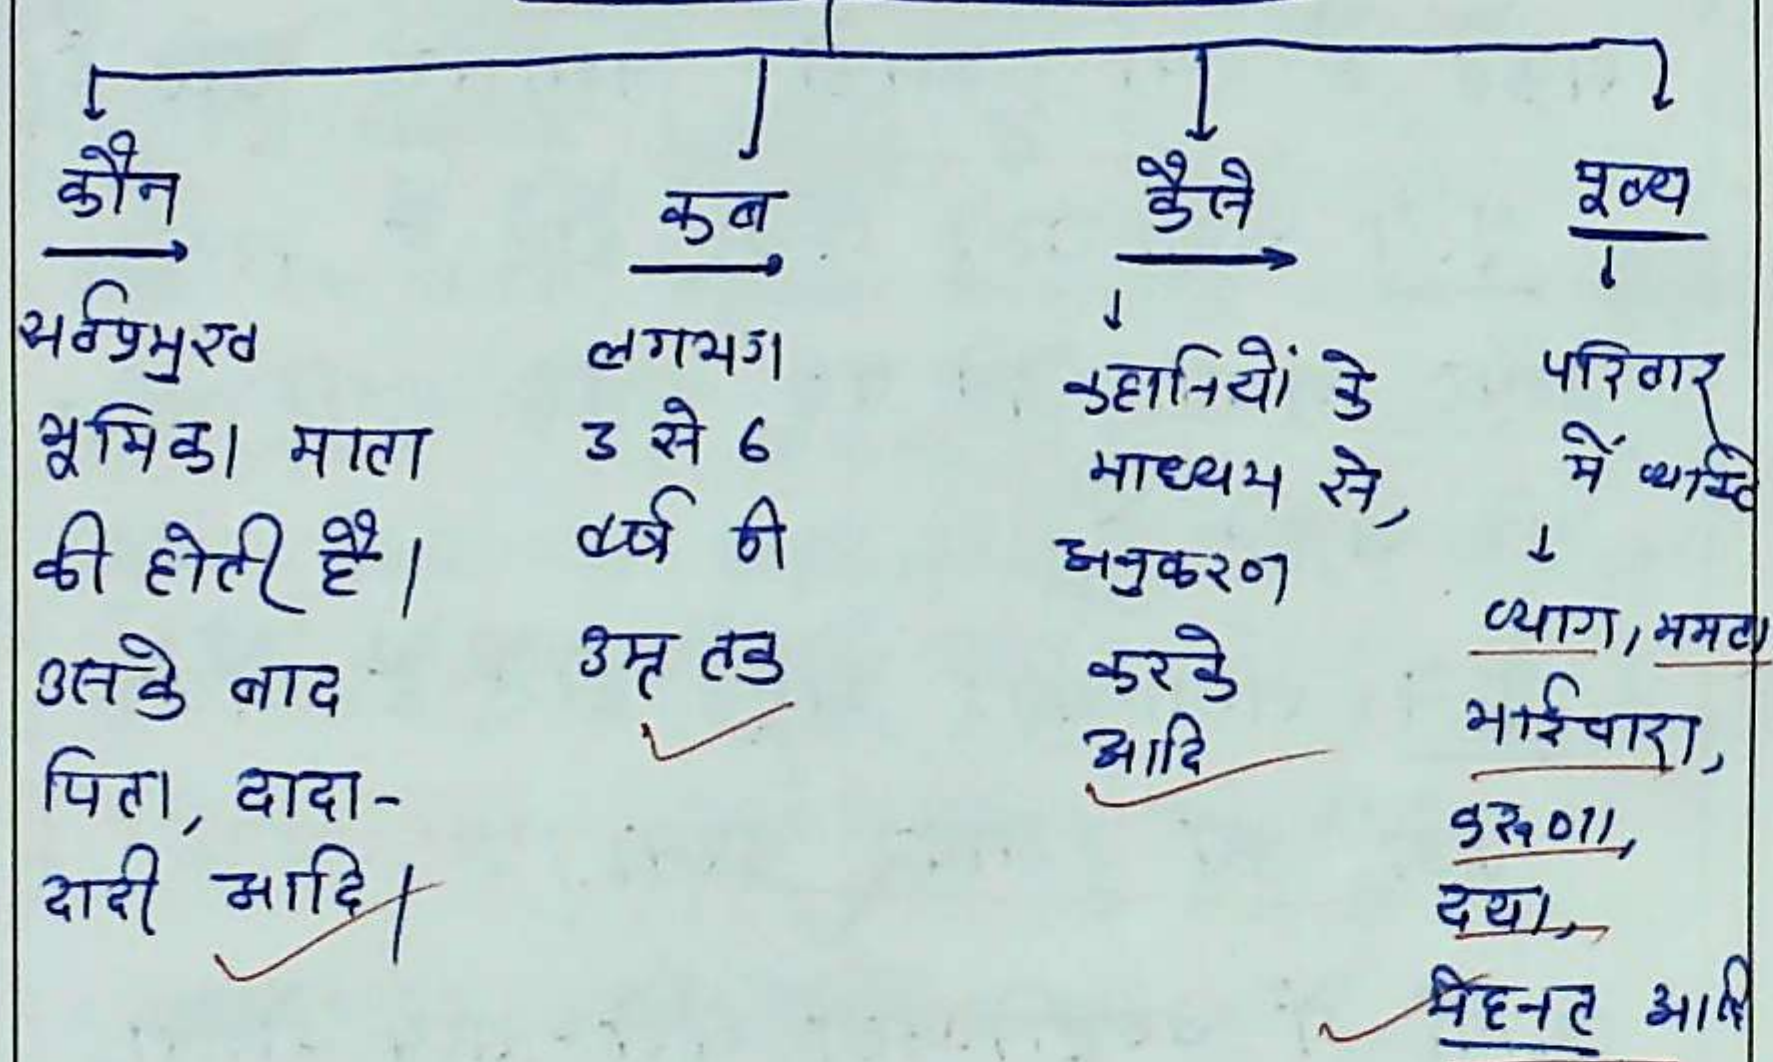 कौन
सर्वप्रमुख
भूमिका माता
की होती है।
उसके बाद
पिता, दादा-
दादी आदि।
कब
लगभग
3 से 6
वर्ष की
उम्र तक
कैसे
कहानियों के
माध्यम से,
अनुकरण
करके
आदि
मूल्य
परिवार
में
त्याग, ममता
भाईचारा,
करूणा,
दया,
मेहनत आदि